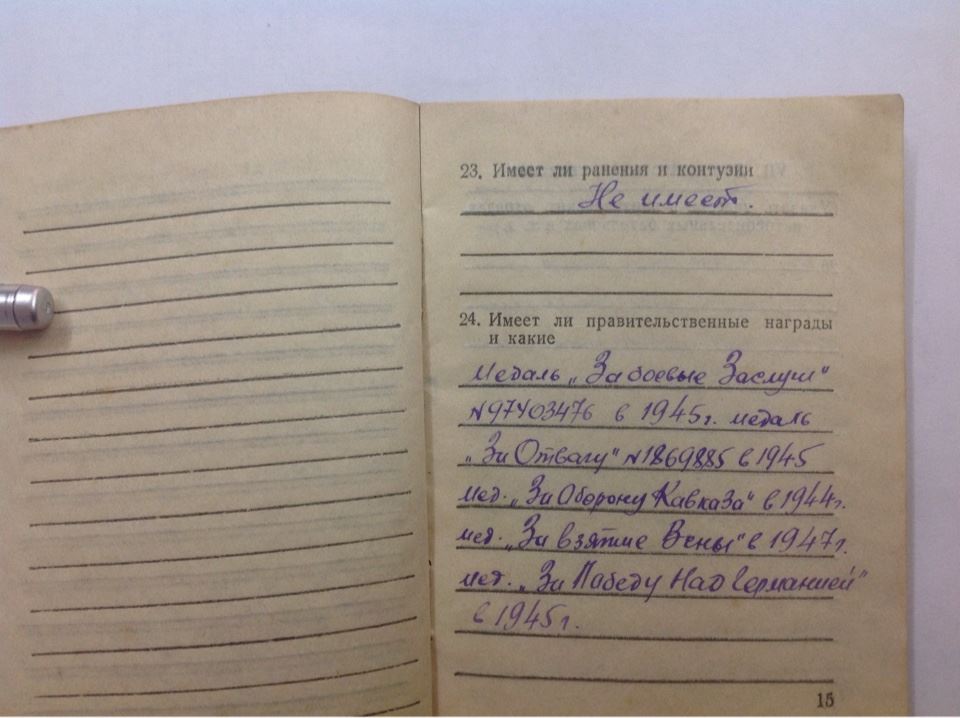 23. Имеет ли ранения и контузии
Не имеет.
24. Имеет ли правительственные награды
и какие
медаль „За боевые Заслуги"
в 1945г. медаль
„За Отвагу" №1869885 в 1945
мед. „За Оборону Кавказа" в 1944г.
мед. „За взятие Вены" в 1947г.
мед. „За Победу Над Германией"
в 1945г.
15